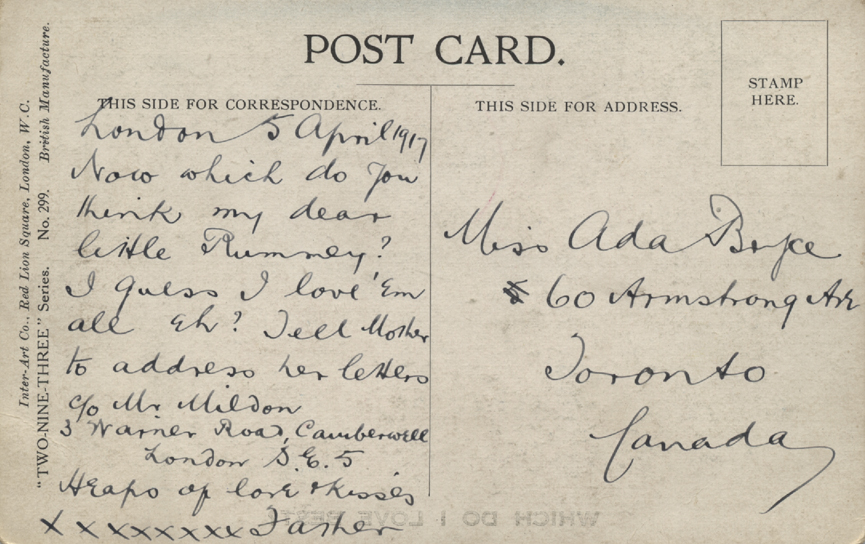 POST CARD.
THIS SIDE FOR CORRESPONDENCE.
London 5 April 1917
Now which do you
think my dear
little Rumney?
I guess I love 'Em
all Eh? Tell Mother
to address her letters
c/o Mr Mildon
3 Warner Road, Camberwell
London S.E. 5
Heaps of love & kisses
x x x x x x x x Father
THIS SIDE FOR ADDRESS.
STAMP
HERE.
Miss Ada Bryce
60 Armstrong Ave
Toronto
Canada
Inter-Art Co., Red Lion Square, London, W.C. British Manufacture.
"TWO-NINE-THREE" Series. No. 299.
WHICH DO I LOVE BEST?